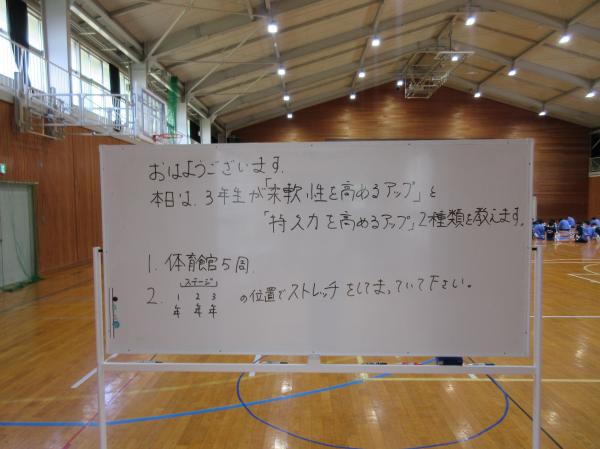 おはようございます.
本日は、3年生が「柔軟性を高めるアップ」と
「持久力を高めるアップ」2種類を教えます。
1. 体育館5周.
ステージ
2. 1年 2年 3年 の位置でストレッチをしてまっていて下さい。